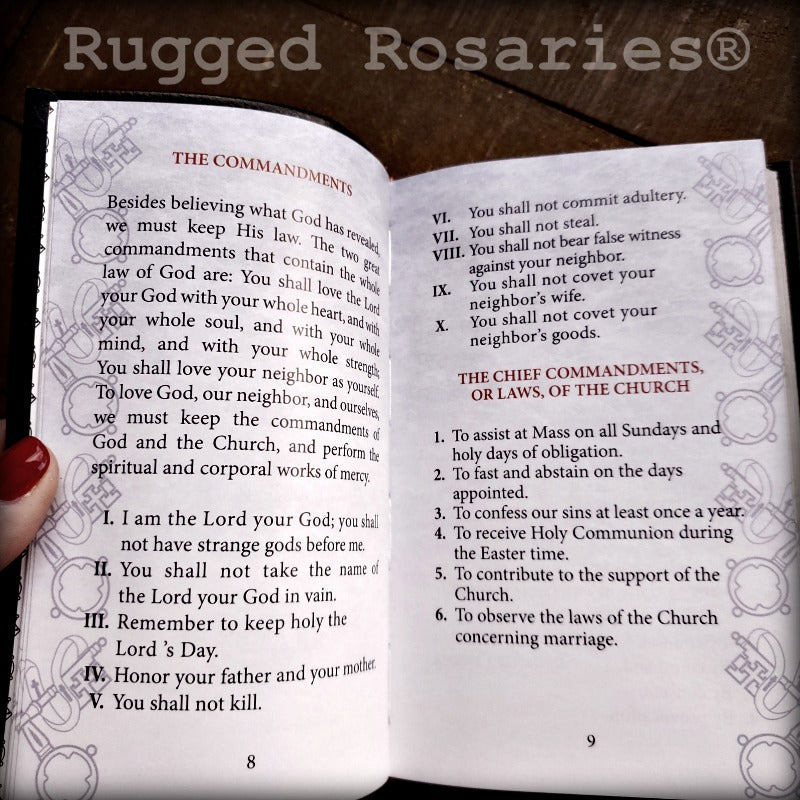 Rugged Rosaries®
THE COMMANDMENTS
Besides believing what God has revealed,
we must keep His law. The two great
commandments that contain the whole
law of God are: You shall love the Lord
your God with your whole heart, and with
your whole soul, and with your whole
mind, and with your whole strength;
You shall love your neighbor as yourself.
To love God, our neighbor, and ourselves,
we must keep the commandments of
God and the Church, and perform the
spiritual and corporal works of mercy.
I. I am the Lord your God; you shall
not have strange gods before me.
II. You shall not take the name of
the Lord your God in vain.
III. Remember to keep holy the
Lord 's Day.
IV. Honor your father and your mother.
V. You shall not kill.
8
VI. You shall not commit adultery.
VII. You shall not steal.
VIII. You shall not bear false witness
against your neighbor.
IX. You shall not covet your
neighbor's wife.
X. You shall not covet your
neighbor's goods.
THE CHIEF COMMANDMENTS,
OR LAWS, OF THE CHURCH
1. To assist at Mass on all Sundays and
holy days of obligation.
2. To fast and abstain on the days
appointed.
3. To confess our sins at least once a year.
4. To receive Holy Communion during
the Easter time.
5. To contribute to the support of the
Church.
6. To observe the laws of the Church
concerning marriage.
9